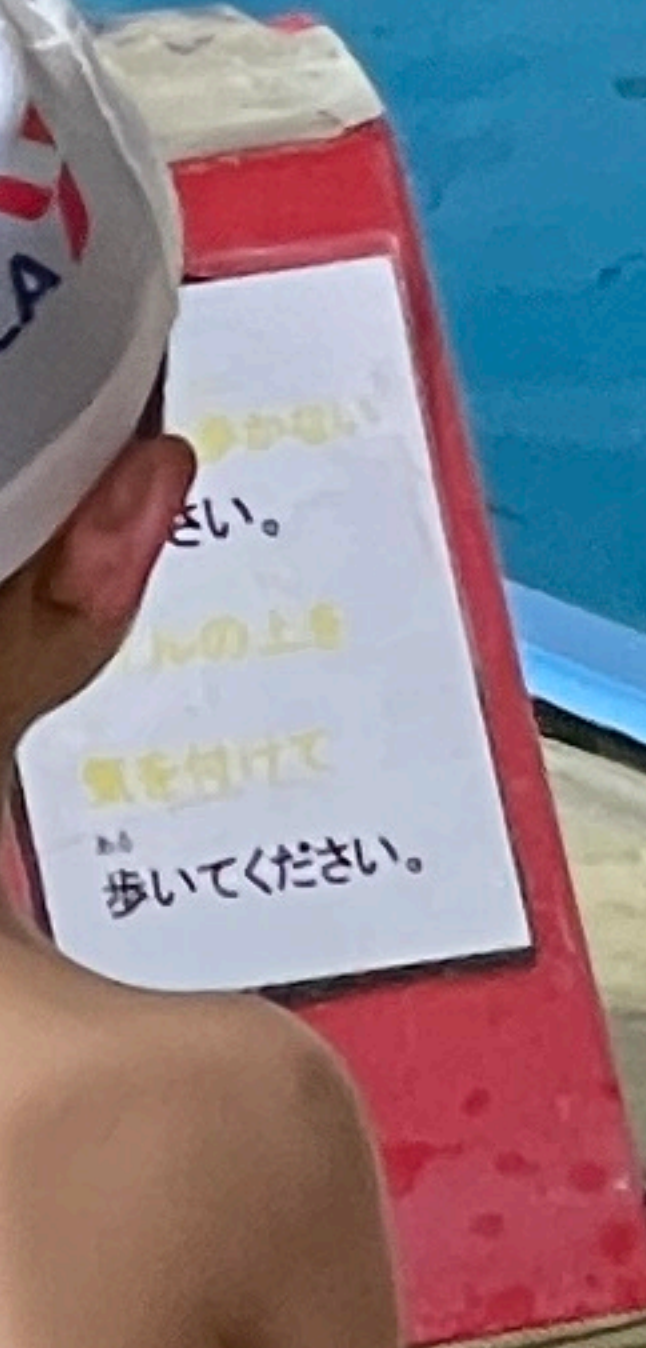 LA
歩かない
さい。
ルの上を
気を付けて
ある
歩いてください。